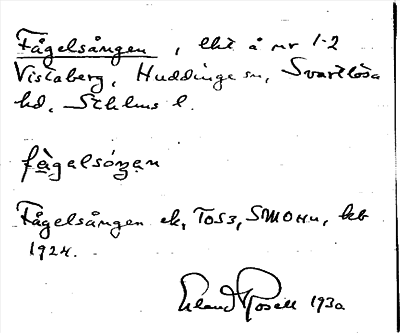 Fågelsången, lht å nr 1-2
Vistaberg, Huddinge sn, Svartlösa
hd, Sthlms l.
fågelsóŋen
Fågelsången ek, TOS3, SMOHu, kb
1924.
Erland Rosell 1930